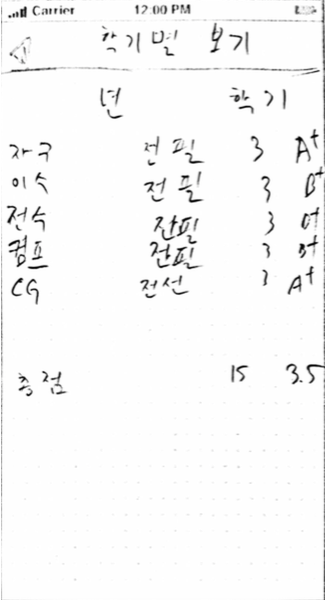 Carrier 12:00 PM
학기별 보기
년 학기
자구 전필 3 A+
이수 전필 3 B+
전수 전필 3 D+
컴프 전필 3 B+
CG 전선 3 A+
총점 15 3.5